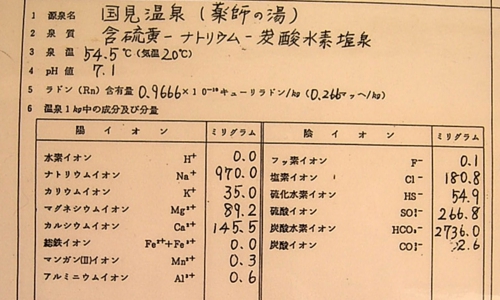 1 源泉名 国見温泉(薬師の湯)
2 泉質 含硫黄-ナトリウム-炭酸水素塩泉
3 泉温 54.5℃(気温20℃)
4 pH値 7.1
5 ラドン(Rn)含有量 0.9666×10⁻¹⁰キューリラドン/kg(0.266マッヘ/kg)
6 温泉1kg中の成分及び分量
陽イオン ミリグラム 陰イオン ミリグラム
水素イオン H⁺ 0.0 フッ素イオン F⁻ 0.1
ナトリウムイオン Na⁺ 970.0 塩素イオン Cl⁻ 180.8
カリウムイオン K⁺ 35.0 硫化水素イオン HS⁻ 54.9
マグネシウムイオン Mg²⁺ 89.2 硫酸イオン SO₄²⁻ 266.8
カルシウムイオン Ca²⁺ 145.5 炭酸水素イオン HCO₃⁻ 2736.0
総鉄イオン Fe²⁺+Fe³⁺ 0.0 炭酸イオン CO₃²⁻ 2.6
マンガン(II)イオン Mn²⁺ 0.3
アルミニウムイオン Al³⁺ 0.6